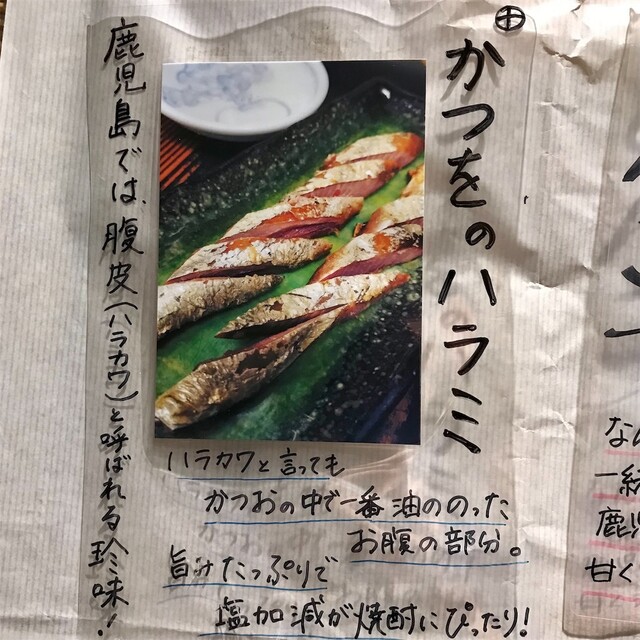 かつをのハラミ
鹿児島では、腹皮(ハラカワ)と呼ばれる珍味!
ハラカワと言っても
かつおの中で一番油ののった
お腹の部分。
旨みたっぷりで
塩加減が焼酎にぴったり!
一緒
鹿児
甘く